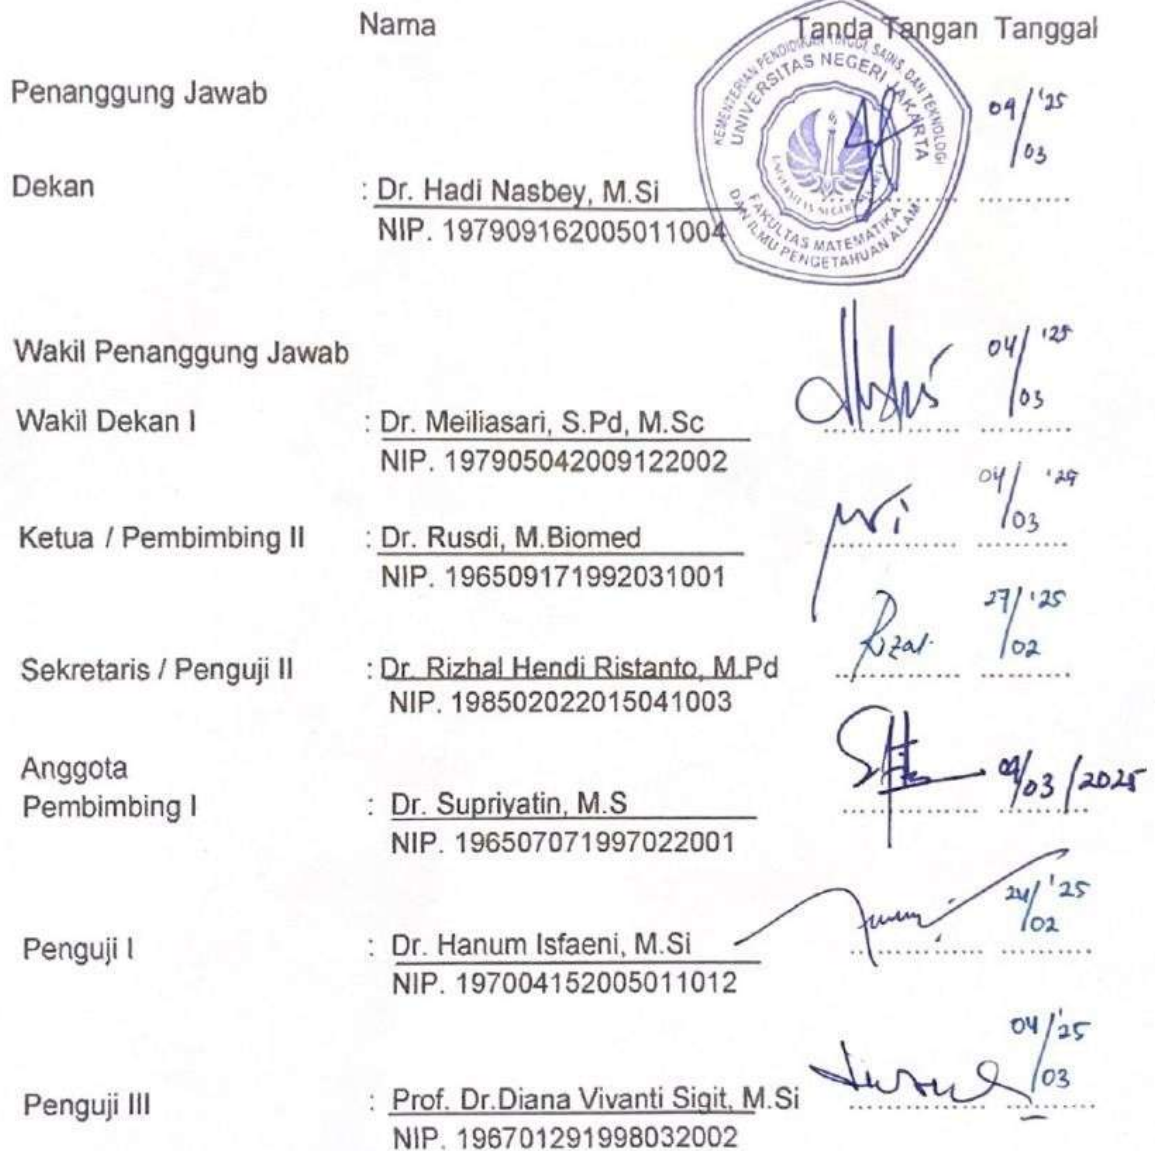 Nama Tanda Tangan Tanggal
KEMENTERIAN PENDIDIKAN TINGGI, SAINS, DAN TEKNOLOGI
UNIVERSITAS NEGERI JAKARTA
UNIVERSITAS NEGERI
FAKULTAS MATEMATIKA
DAN ILMU PENGETAHUAN ALAM
Penanggung Jawab
04/03 '25
Dekan : Dr. Hadi Nasbey, M.Si
NIP. 197909162005011004
Wakil Penanggung Jawab
04/03 '25
Wakil Dekan I : Dr. Meiliasari, S.Pd, M.Sc
NIP. 197905042009122002
04/03
Ketua / Pembimbing II : Dr. Rusdi, M.Biomed
NIP. 196509171992031001
27/02 '25
Rizal
Sekretaris / Penguji II : Dr. Rizhal Hendi Ristanto, M.Pd
NIP. 198502022015041003
Anggota
04/03/2025
Pembimbing I : Dr. Supriyatin, M.S
NIP. 196507071997022001
24/02 '25
Penguji I : Dr. Hanum Isfaeni, M.Si
NIP. 197004152005011012
04/03 '25
Penguji III : Prof. Dr.Diana Vivanti Sigit, M.Si
NIP. 196701291998032002